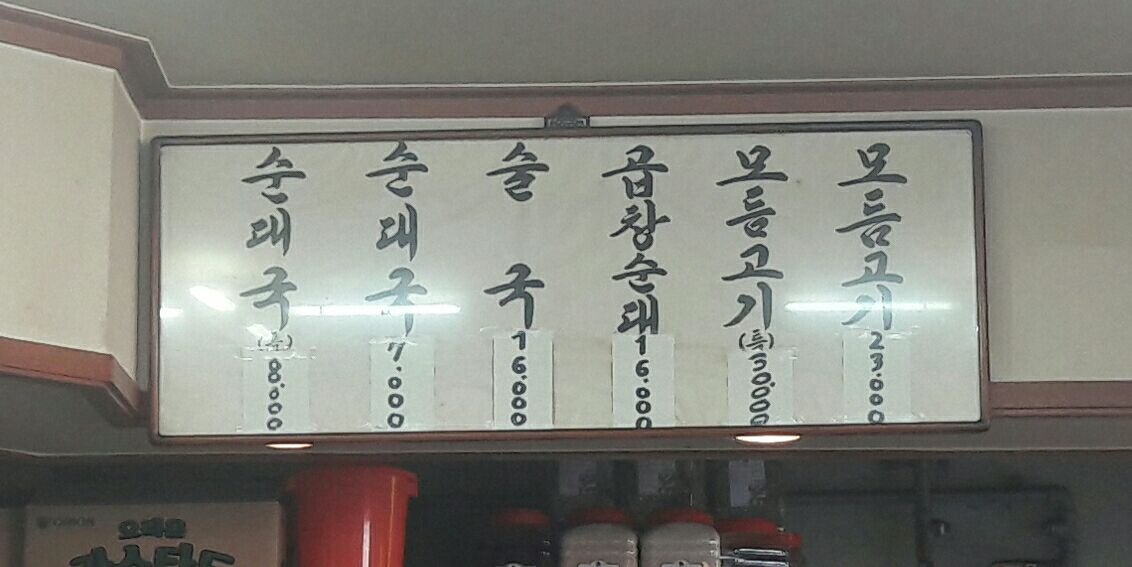 순대국 8.000
순대국 7.000
술국 16.000
곱창순대 16.000
모듬고기 (특) 30.000
모듬고기 23.000
ORION
오리온